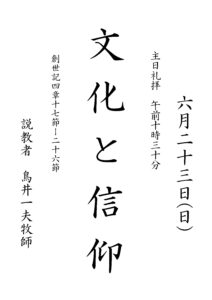 六月二十三日(日)
主日礼拝 午前十時三十分
文化と信仰
創世記四章十七節ー二十六節
説教者 鳥井一夫牧師